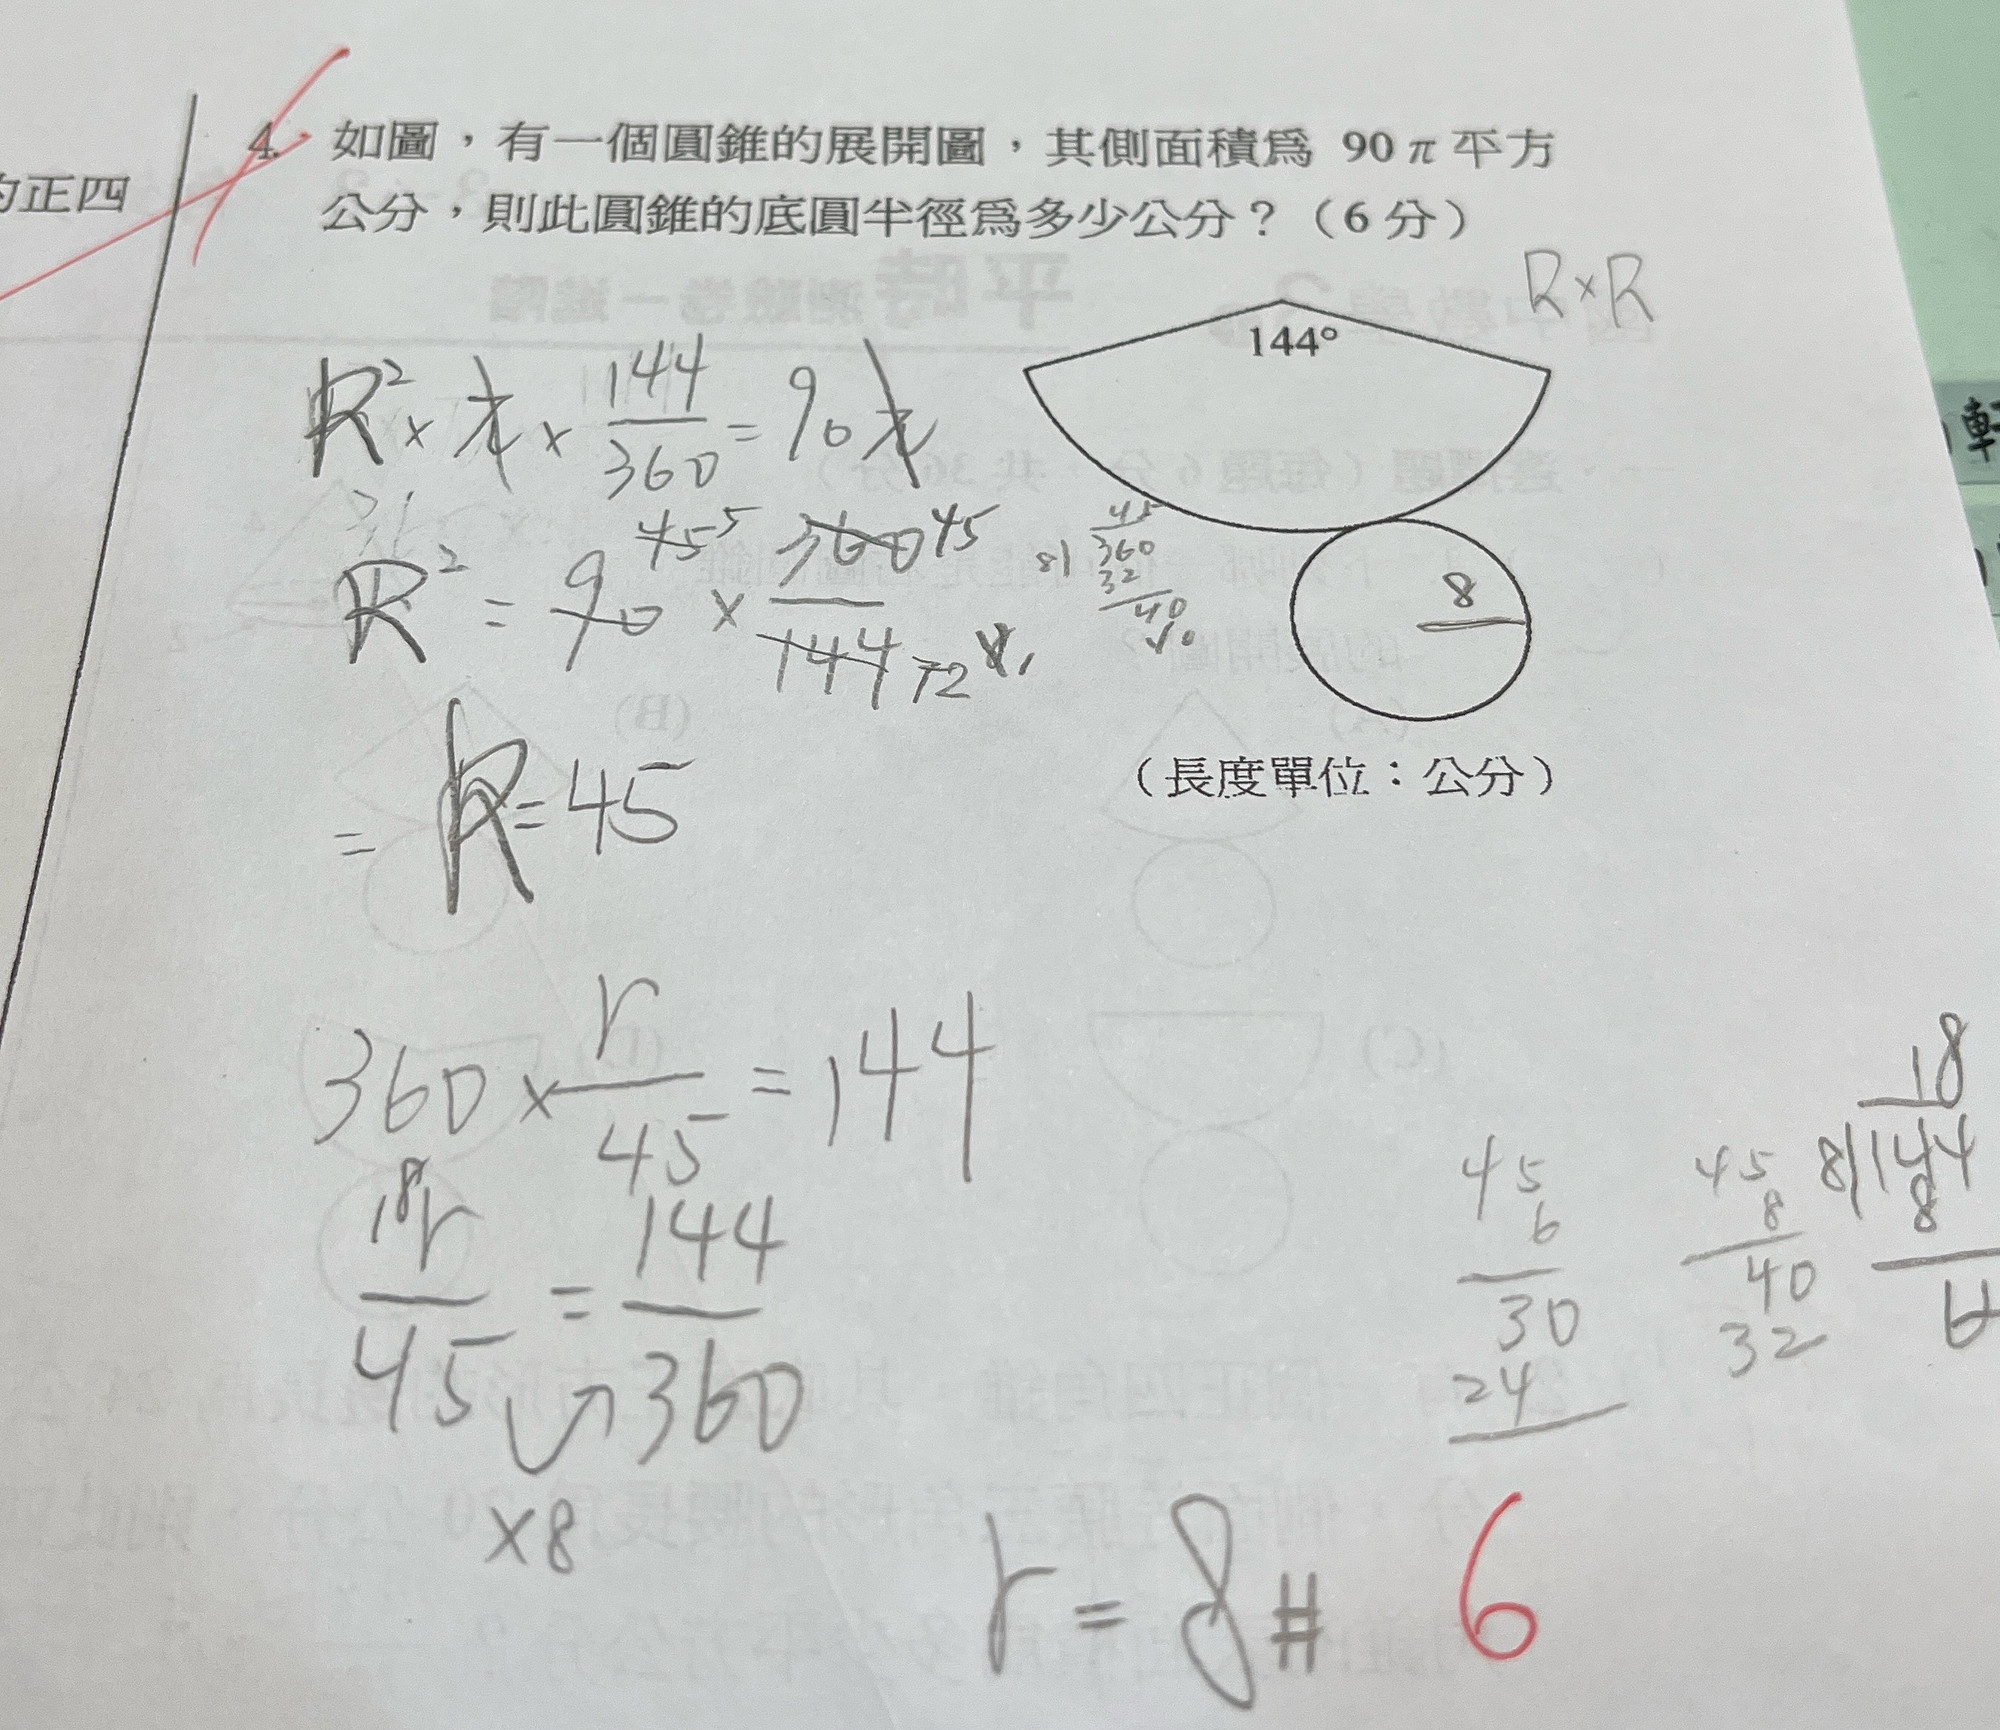 的正四
4. 如圖，有一個圓錐的展開圖，其側面積為 90π 平方
公分，則此圓錐的底圓半徑為多少公分？（6 分）
R×R
144°
R² × π × 144/360 = 90π
R² = 90 45 5 × 360 45 / 144 72 8 1
45
8) 360
32
40
40
8
= R = 45
（長度單位：公分）
360 × r/45 = 144
18r/45 = 144/360
×8
45
6
30
24
45
8
40
32
18
8)144
8
6
r = 8 #
6
軒